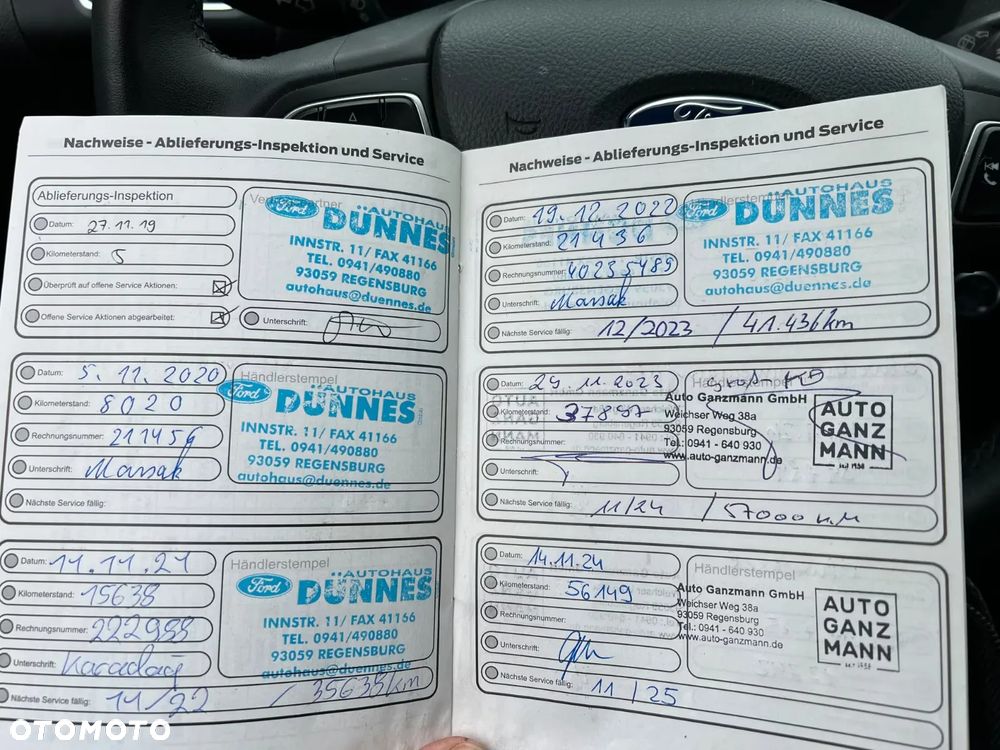 Ford
Nachweise - Ablieferungs-Inspektion und Service
Ablieferungs-Inspektion
Datum: 27.11.19
Kilometerstand: 5
Überprüft auf offene Service Aktionen:
Offene Service Aktionen abgearbeitet:
Ford AUTOHAUS
DÜNNES
INNSTR. 11/ FAX 41166
TEL. 0941/490880
93059 REGENSBURG
autohaus@duennes.de
Unterschrift:
Datum: 5. 11. 2020
Kilometerstand: 8020
Rechnungsnummer:
Unterschrift: Marsak
Nächste Service fällig:
Händlerstempel
Ford AUTOHAUS
DÜNNES
INNSTR. 11/ FAX 41166
TEL. 0941/490880
93059 REGENSBURG
autohaus@duennes.de
Datum: 11.11.21
Kilometerstand: 15638
Rechnungsnummer: 222988
Unterschrift: Karadag
Nächste Service fällig: 11/22 / 35638km
Händlerstempel
Ford AUTOHAUS
DÜNNES
INNSTR. 11/ FAX 41166
TEL. 0941/490880
93059 REGENSBURG
autohaus@duennes.de
Nachweise - Ablieferungs-Inspektion und Service
Datum: 19.12.2022
Kilometerstand: 21436
Rechnungsnummer: 40235489
Unterschrift: Marsak
Nächste Service fällig: 12/2023 / 41.436km
Ford AUTOHAUS
DÜNNES
INNSTR. 11/ FAX 41166
TEL. 0941/490880
93059 REGENSBURG
autohaus@duennes.de
Datum: 29.11.2023
Kilometerstand: 37897
Rechnungsnummer:
Unterschrift:
Nächste Service fällig: 11/24 / 57000 km
Händlerstempel
Auto Ganzmann GmbH
Weichser Weg 38a
93059 Regensburg
Tel.: 0941 - 640 930
www.auto-ganzmann.de
AUTO
GANZ
MANN
Datum: 14.11.24
Kilometerstand: 56149
Rechnungsnummer:
Unterschrift:
Nächste Service fällig: 11/25
Händlerstempel
Auto Ganzmann GmbH
Weichser Weg 38a
93059 Regensburg
Tel.: 0941 - 640 930
www.auto-ganzmann.de
AUTO
GANZ
MANN
OTOMOTO